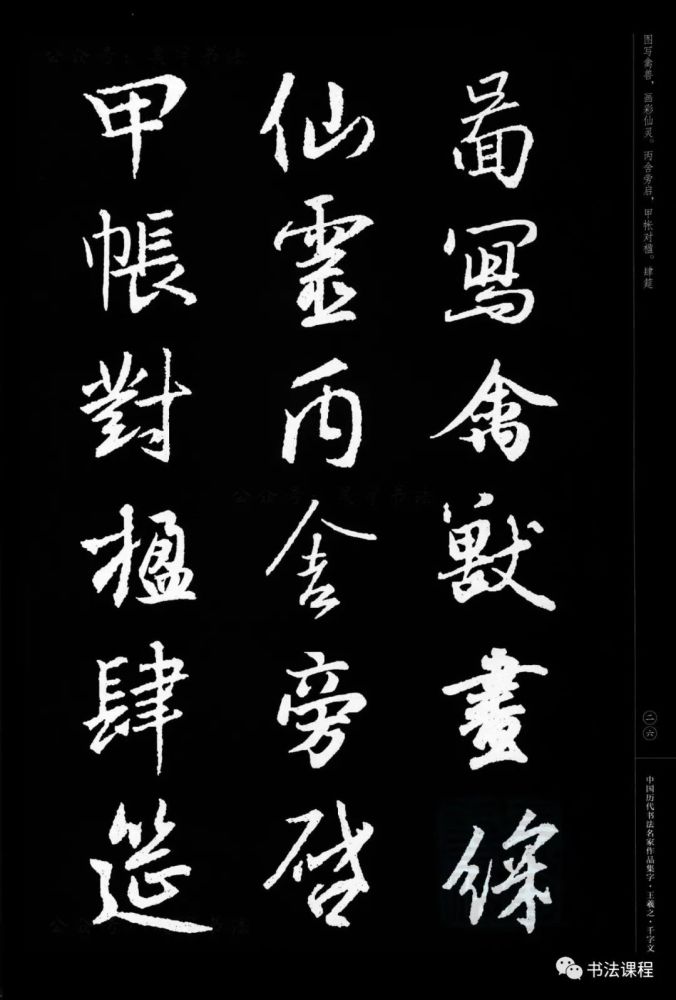 啚寫禽獸畫綵
仙靈丙舍旁啓
甲帳對楹肆筵
图写禽兽，画彩仙灵。丙舍旁启，甲帐对楹。肆筵
二六
中国历代书法名家作品集字·王羲之·千字文
书法课程